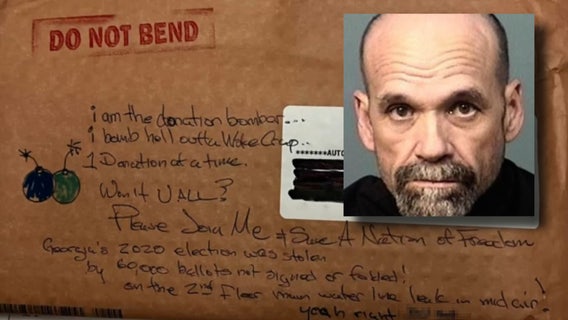 DO NOT BEND
i am the donation bomber...
i bomb hell outta Woke Crap..
1 Donation at a time.
*******AUTO
Won't U ALL?
Please Join Me & Save A Nation of Freedom
Georgia's 2020 election was stolen
by 60,000 ballots not signed or folded!
on the 2nd Floor main water line leak in mid air!
yeah right